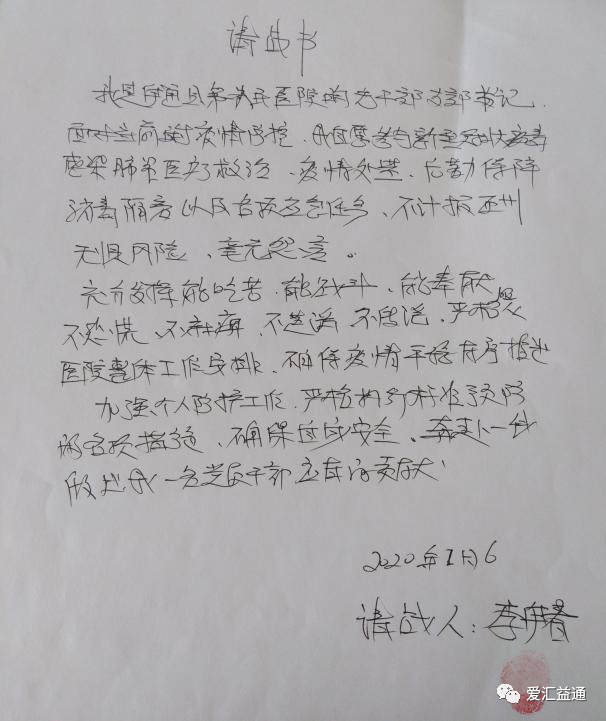 请战书
我是宁通县第人民医院的老干部支部书记
面对当前的疫情防控,我自愿参与新型冠状病毒
感染肺炎医疗救治、疫情处置、后勤保障
消毒隔离以及各项应急任务,不计报酬
无惧风险,毫无怨言。
充分发挥能吃苦、能战斗、能奉献
不恐慌、不麻痹、不造谣、不信谣,严格
医院整体工作安排,确保疫情平稳有序推进
加强个人防护工作,严格执行标准预防
的各项措施,确保自身安全,一线
做出我一名党员干部应有的贡献
2020年1月6
请战人:李春
爱汇益通